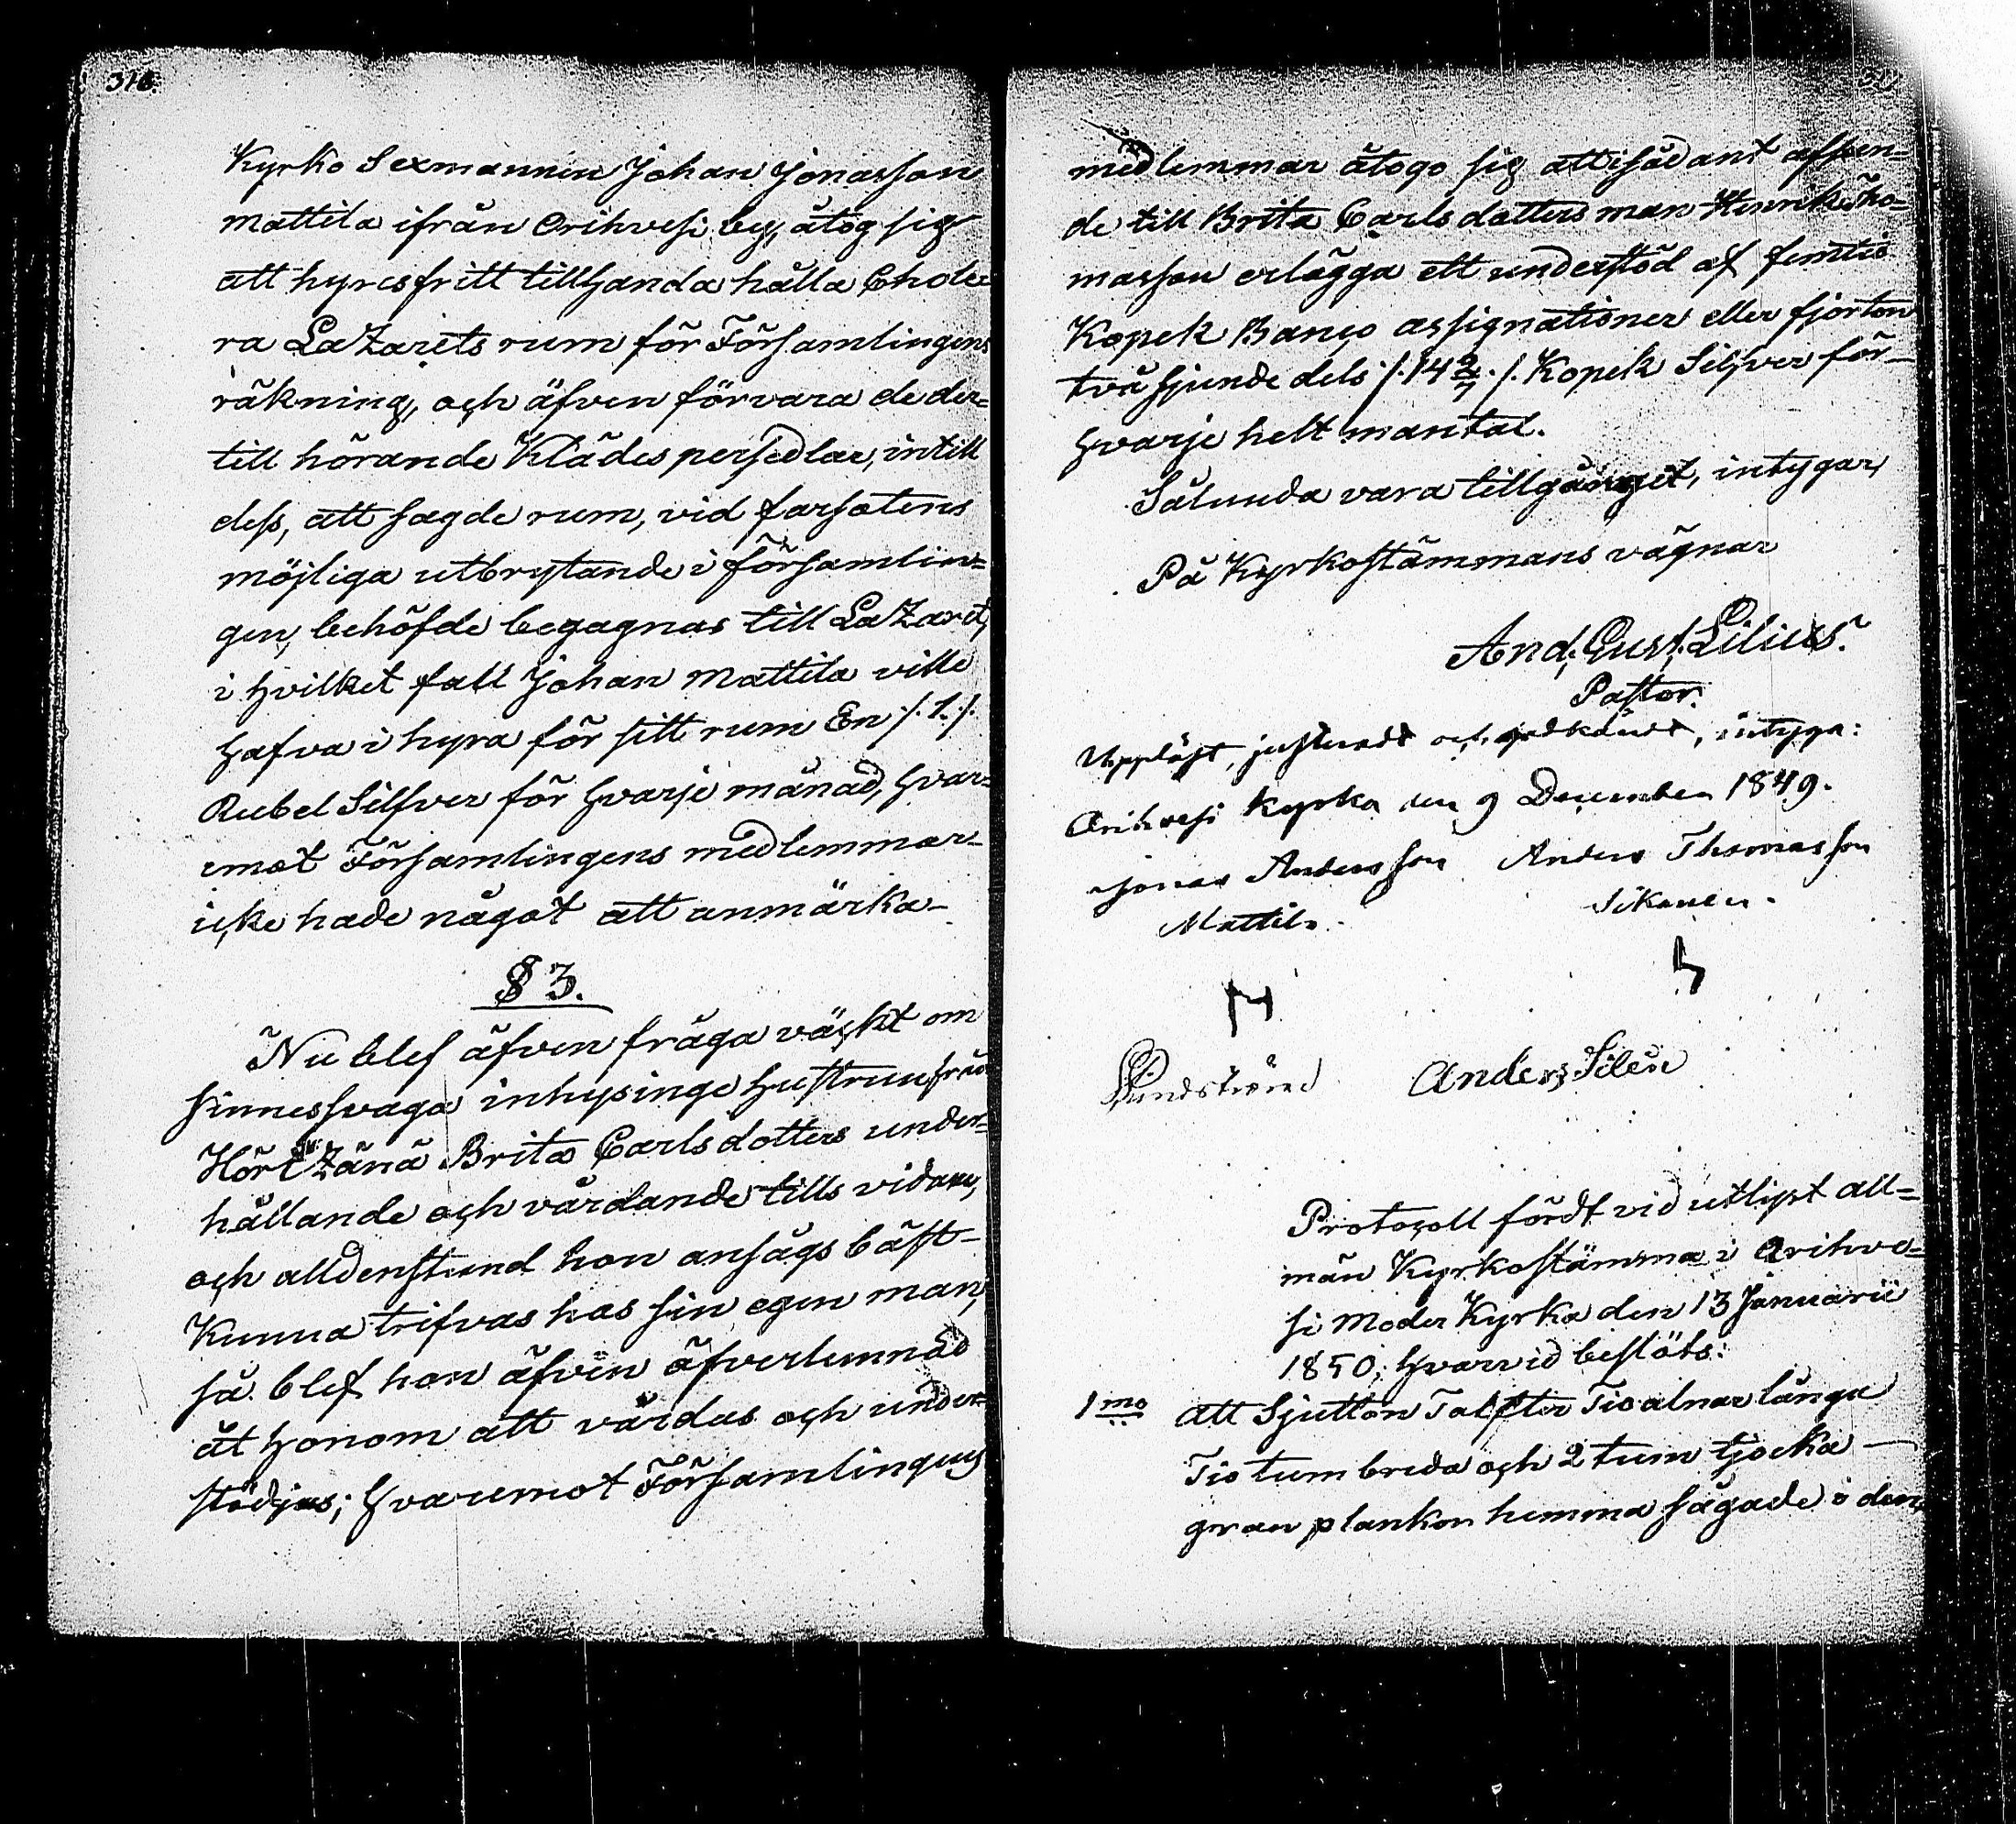 316.
Kyrko Sexmannen Johan Jonasson
Mattila ifrån Orihvesi by, åtog sig
att hyresfritt tillhanda hålla Chole-
ra Lazarets rum för Församlingens
räkning, och äfven förvara de der-
till hörande Klädespersedlar, intill
dess, att sagde rum, vid farsotens
möjliga utbrytande i församlin-
gen, behöfde begagnas till Lazaret,
i hvilket fall Johan Mattila ville
hafva i hyra för sitt rum En /:1:/
Rubel Silfver för hvarje månad, hvar-
emot Församlingens medlemmar
icke hade något att anmärka-
§ 3.
Nu blef äfven fråga väckt om
sinnessvaga inhysinge hustrun från
Hörtzänä Brita Carlsdotters under-
hållande och vårdande tills vidare,
och alldenstund hon ansågs bäst-
kunna trifvas hos sin egen man,
så blef hon äfven öfverlemnad
åt honom att vårdas och under-
stödjas; hvaremot Församlingens
medlemmar åtogo sig att i sådant afseen-
de till Brita Carlsdotters man Henrik Tho-
masson erlägga ett understöd af femtio
Kopek Banco assignationer eller fjorton
två sjunde dels /:14 2/7:/ Kopek Silfver för-
hvarje helt mantal.
Sålunda vara tillgånget, intygar,
På Kyrkostämmans vägnar
And. Gust. Lilius.
Pastor.
Uppläst, justeradt och godkändt, intyga:
Orihvesi Kyrka den 9 December 1849.
Jonas Andersson Anders Thomasson
Mattila. Sikanen.
Lindström Anders Silén
Protocoll fördt vid utlyst all-
män Kyrkostämma i Orihve-
si Moder Kyrka den 13 Januarii
1850, hvarvid beslöts:
1mo Att Sjutton Tolfter Tio alnar långa
Tio tum breda och 2 tum tjocka —
gran plankor hemma sågade i den